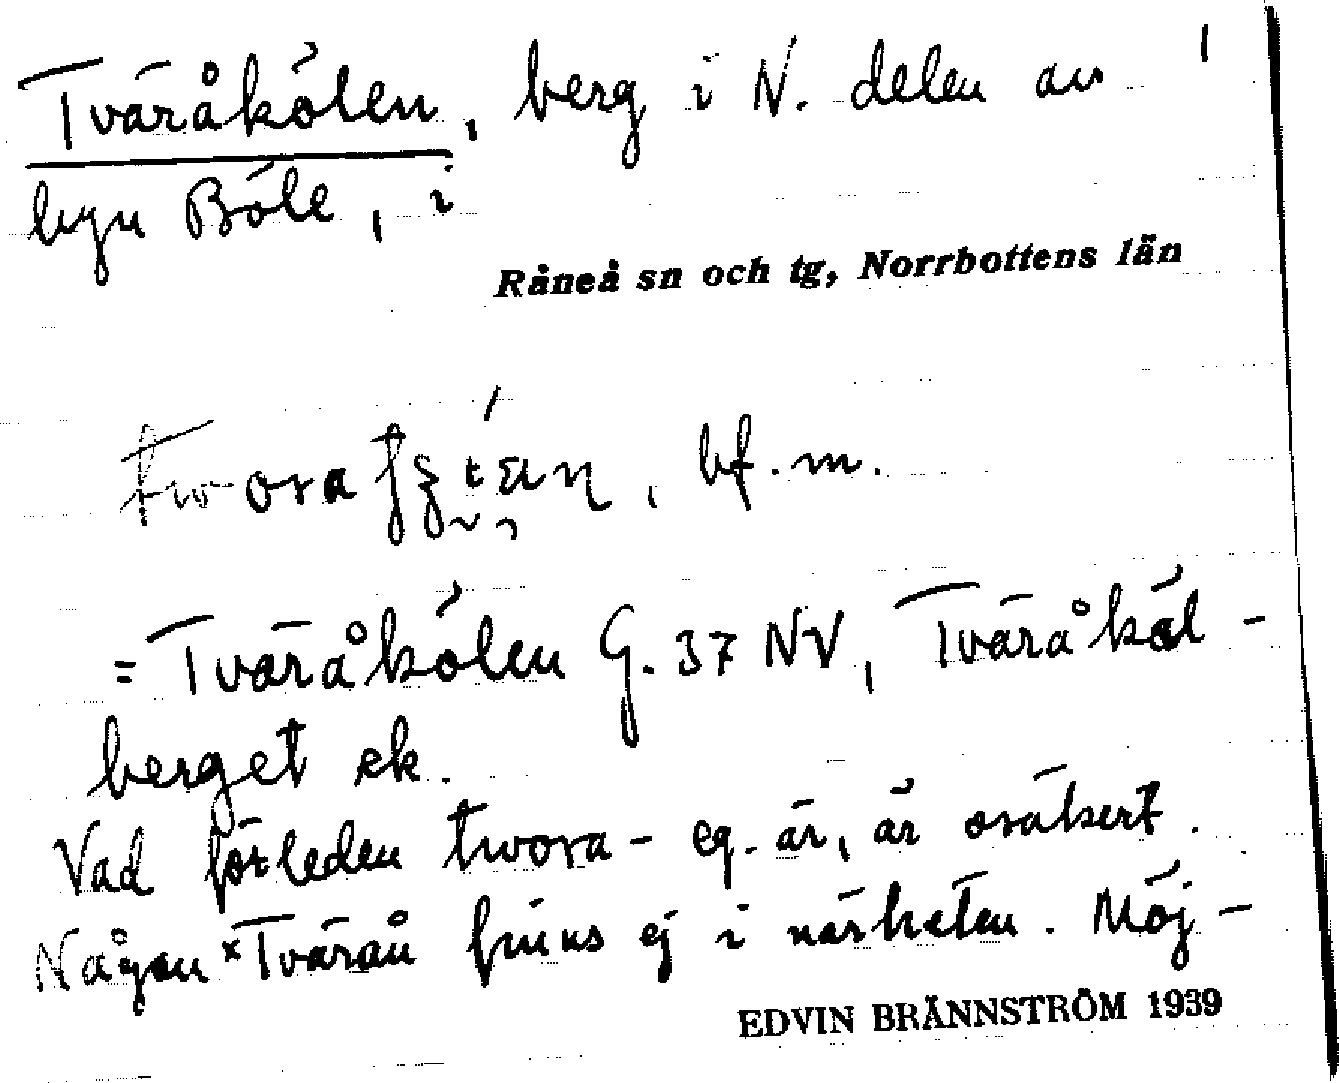 Tväråkölen, berg i N. delen av
byn Böle, i
Råneå sn och tg, Norrbottens län
bf. m.
= Tväråkölen G. 37 NV, Tväråköl-
berget ek.
Vad förleden twora- eg. är, är osäkert.
Någon *Tvärån finns ej i närheten. Möj-
EDVIN BRÄNNSTRÖM 1939